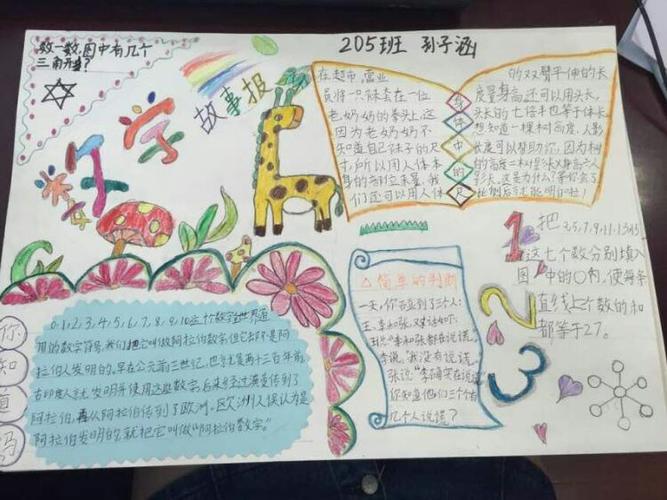 数一数,图中有几个
三角形?
数学
故事报
205班 孙子涵
在超市,营业
员将一只袜套在一位
老奶奶的拳头上,这
因为老奶奶不
知道自己袜子的尺
寸,所以用人体本
身的
们还可以用人体
身体中的尺
的双臂平伸的长
度量身高,还可以用头长,
头长的七倍半也等于体长
想知道一棵树高度,人影
长度可以帮助你,因为树
的高度=树影长×身高÷人
影长,这是为什么?等你会了
比例后
1
2
3
把3,5,7,9,11,13,15
这七个数分别填入
图中的○内,使每条
直线上个数的和
都等于27。
△简单的判断
一天,你碰到了三个人:
王、李和张,对话如下:
王说:“李和张都在说谎
李说:“我没有说谎
张说:“李确实在说谎
你知道他们三个有
几个人说谎?
你知道吗
0,1,2,3,4,5,6,7,8,9,10这个数字是世界通
用的数字符号,我们把它叫做阿拉伯数字,但它却不是阿
拉伯人发明的,早在公元前三世纪,也就是两千三百年前
古印度人就发明并使用这些数字,后来经过演变传到了
阿拉伯,再从阿拉伯传到了欧洲,欧洲人误认为是
阿拉伯发明的,就把它叫做“阿拉伯数字。”